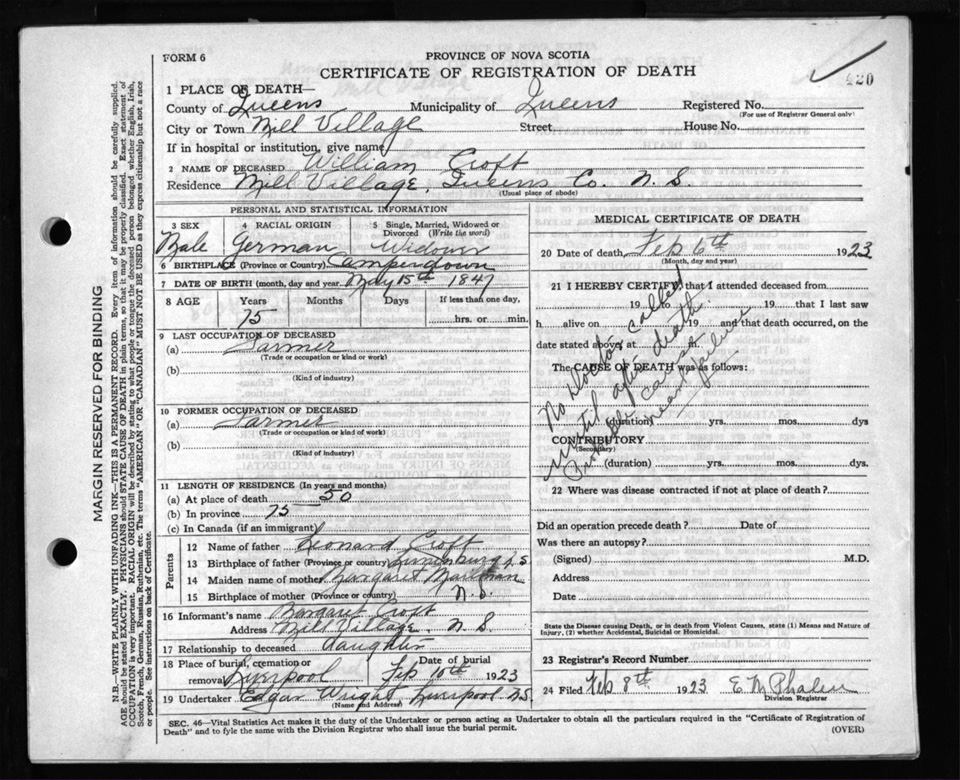 FORM 6
PROVINCE OF NOVA SCOTIA
CERTIFICATE OF REGISTRATION OF DEATH
420
1 PLACE OF DEATH—
County of Queens Municipality of Queens Registered No.
(For use of Registrar General only)
City or Town Mill Village Street House No.
If in hospital or institution, give name
2 NAME OF DECEASED William Croft
Residence Mill Village, Queens Co. N. S.
(Usual place of abode)
PERSONAL AND STATISTICAL INFORMATION
3 SEX 4 RACIAL ORIGIN 5 Single, Married, Widowed or Divorced (Write the word)
Male German Widower
6 BIRTHPLACE (Province or Country) Camperdown
7 DATE OF BIRTH (month, day and year) May 15th 1847
8 AGE Years Months Days If less than one day,
75 hrs. or min.
9 LAST OCCUPATION OF DECEASED
(a) Farmer
(Trade or occupation or kind of work)
(b)
(Kind of industry)
10 FORMER OCCUPATION OF DECEASED
(a) Farmer
(Trade or occupation or kind of work)
(b)
(Kind of industry)
11 LENGTH OF RESIDENCE (In years and months)
(a) At place of death 50
(b) In province 75
(c) In Canada (if an immigrant)
Parents
12 Name of father Leonard Croft
13 Birthplace of father (Province or country) Lunenburg N.S
14 Maiden name of mother Margaret
15 Birthplace of mother (Province or country) N.S.
16 Informant's name Margaret Croft
Address Mill Village N S
17 Relationship to deceased daughter
18 Place of burial, cremation or removal Date of burial
Liverpool Feb 10th 1923
19 Undertaker Edgar Wright Liverpool N.S.
(Name and Address)
MEDICAL CERTIFICATE OF DEATH
20 Date of death Feb 6th 1923
(Month, day and year)
21 I HEREBY CERTIFY that I attended deceased from
19 to 19 that I last saw
h alive on 19 and that death occurred, on
date stated above at
The CAUSE OF DEATH was as follows:
No Doctor called
until after death.
Probable cause
heart failure
(duration) yrs. mos. dys
CONTRIBUTORY
(Secondary)
(duration) yrs. mos. dys.
22 Where was disease contracted if not at place of death?
Did an operation precede death? Date of
Was there an autopsy?
(Signed) M.D.
Address
Date
State the Disease causing Death, or in death from Violent Causes, state (1) Means and Nature of
Injury, (2) whether Accidental, Suicidal or Homicidal.
23 Registrar's Record Number
24 Filed Feb 8th 1923 E. M Phalen
Division Registrar
SEC. 46—Vital Statistics Act makes it the duty of the Undertaker or person acting as Undertaker to obtain all the particulars required in the "Certificate of Registration of
Death" and to fyle the same with the Division Registrar who shall issue the burial permit.
(OVER)
MARGIN RESERVED FOR BINDING
N.B.—WRITE PLAINLY WITH UNFADING INK—THIS IS A PERMANENT RECORD. Every item of information should be carefully supplied.
AGE should be stated EXACTLY. PHYSICIANS should STATE CAUSE OF DEATH in plain terms, so that it may be properly classified. Exact statement of
OCCUPATION is very important. RACIAL ORIGIN will be described by stating to what people or tongue the deceased person belonged whether English, Irish,
Scotch, French, German, Russian, Ruthenian, etc. The terms "AMERICAN" or "CANADIAN" MUST NOT BE USED as they express citizenship but not a race
or people. See instructions on back of Certificate.